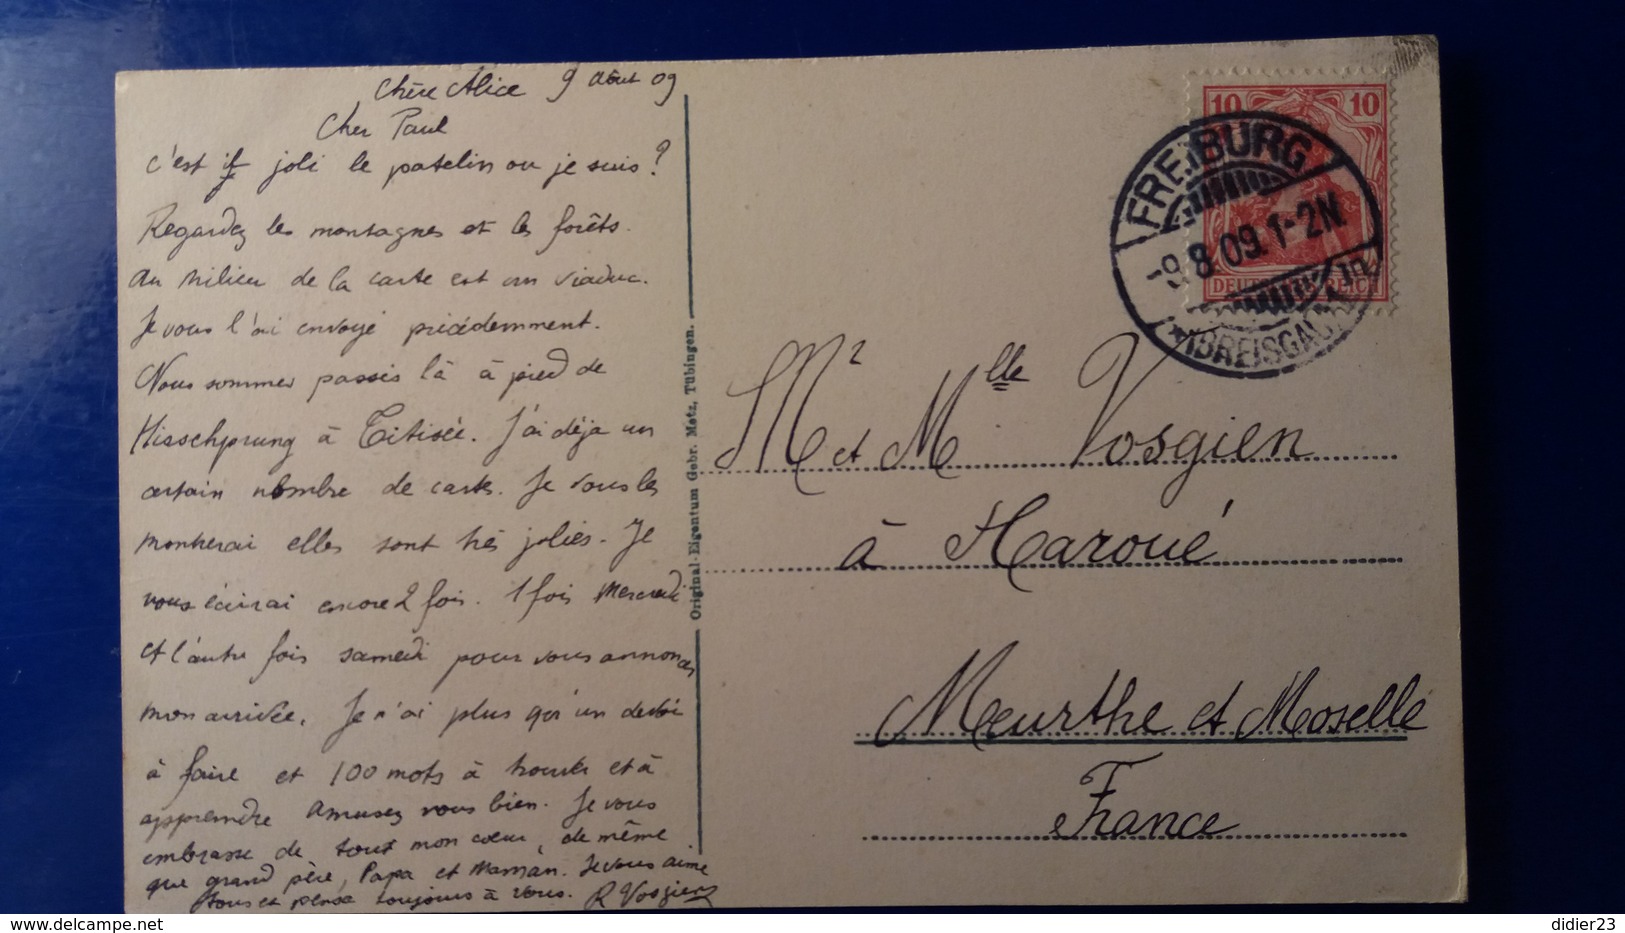 Chère Alice 9 Août 09
Cher Paul
c'est il joli le patelin ou je suis?
Regardez les montagnes et les forêts.
Au milieu de la carte est un viaduc.
Je vous l'ai envoyé précédemment.
Nous sommes passés là à pied de
Hisschprung à Titisée. J'ai déjà un
certain nombre de cartes. Je vous les
montrerai elles sont très jolies. Je
vous écrirai encore 2 fois. 1 fois Mercredi
et l'autre fois samedi pour vous annoncer
mon arrivée. Je n'ai plus qu'un devoir
à faire et 100 mots à trouver et à
apprendre Amusez vous bien. Je vous
embrasse de tout mon cœur, de même
que grand père, Papa et Maman. Je vous aime
tous et pense toujours à vous. R Vosgien
Original-Eigentum Gebr. Metz, Tübingen.
10 10
DEUTSCHES REICH
FREIBURG
-9.8.09.1-2N.
(BREISGAU)
Mr et Mlle Vosgien
à Haroué
Meurthe et Moselle
France
didier23